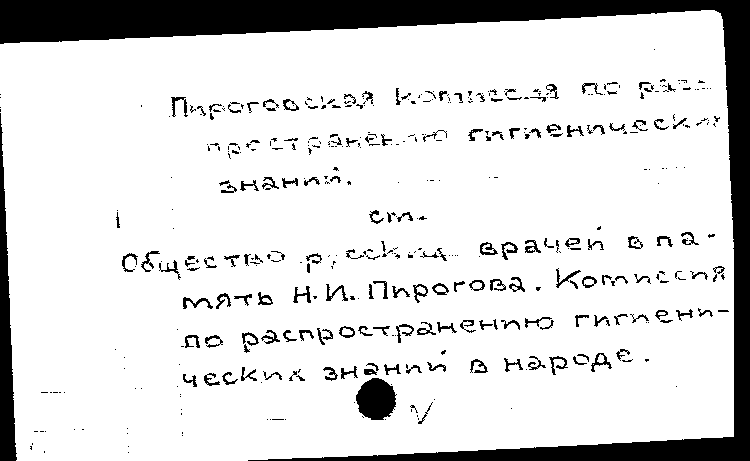 Пироговская комиссия по рас-
пространению гигиенических
знаний.
ст.
Общество русских врачей в па-
мять Н.И. Пирогова. Комиссия
по распространению гигиени-
ческих знаний в народе.